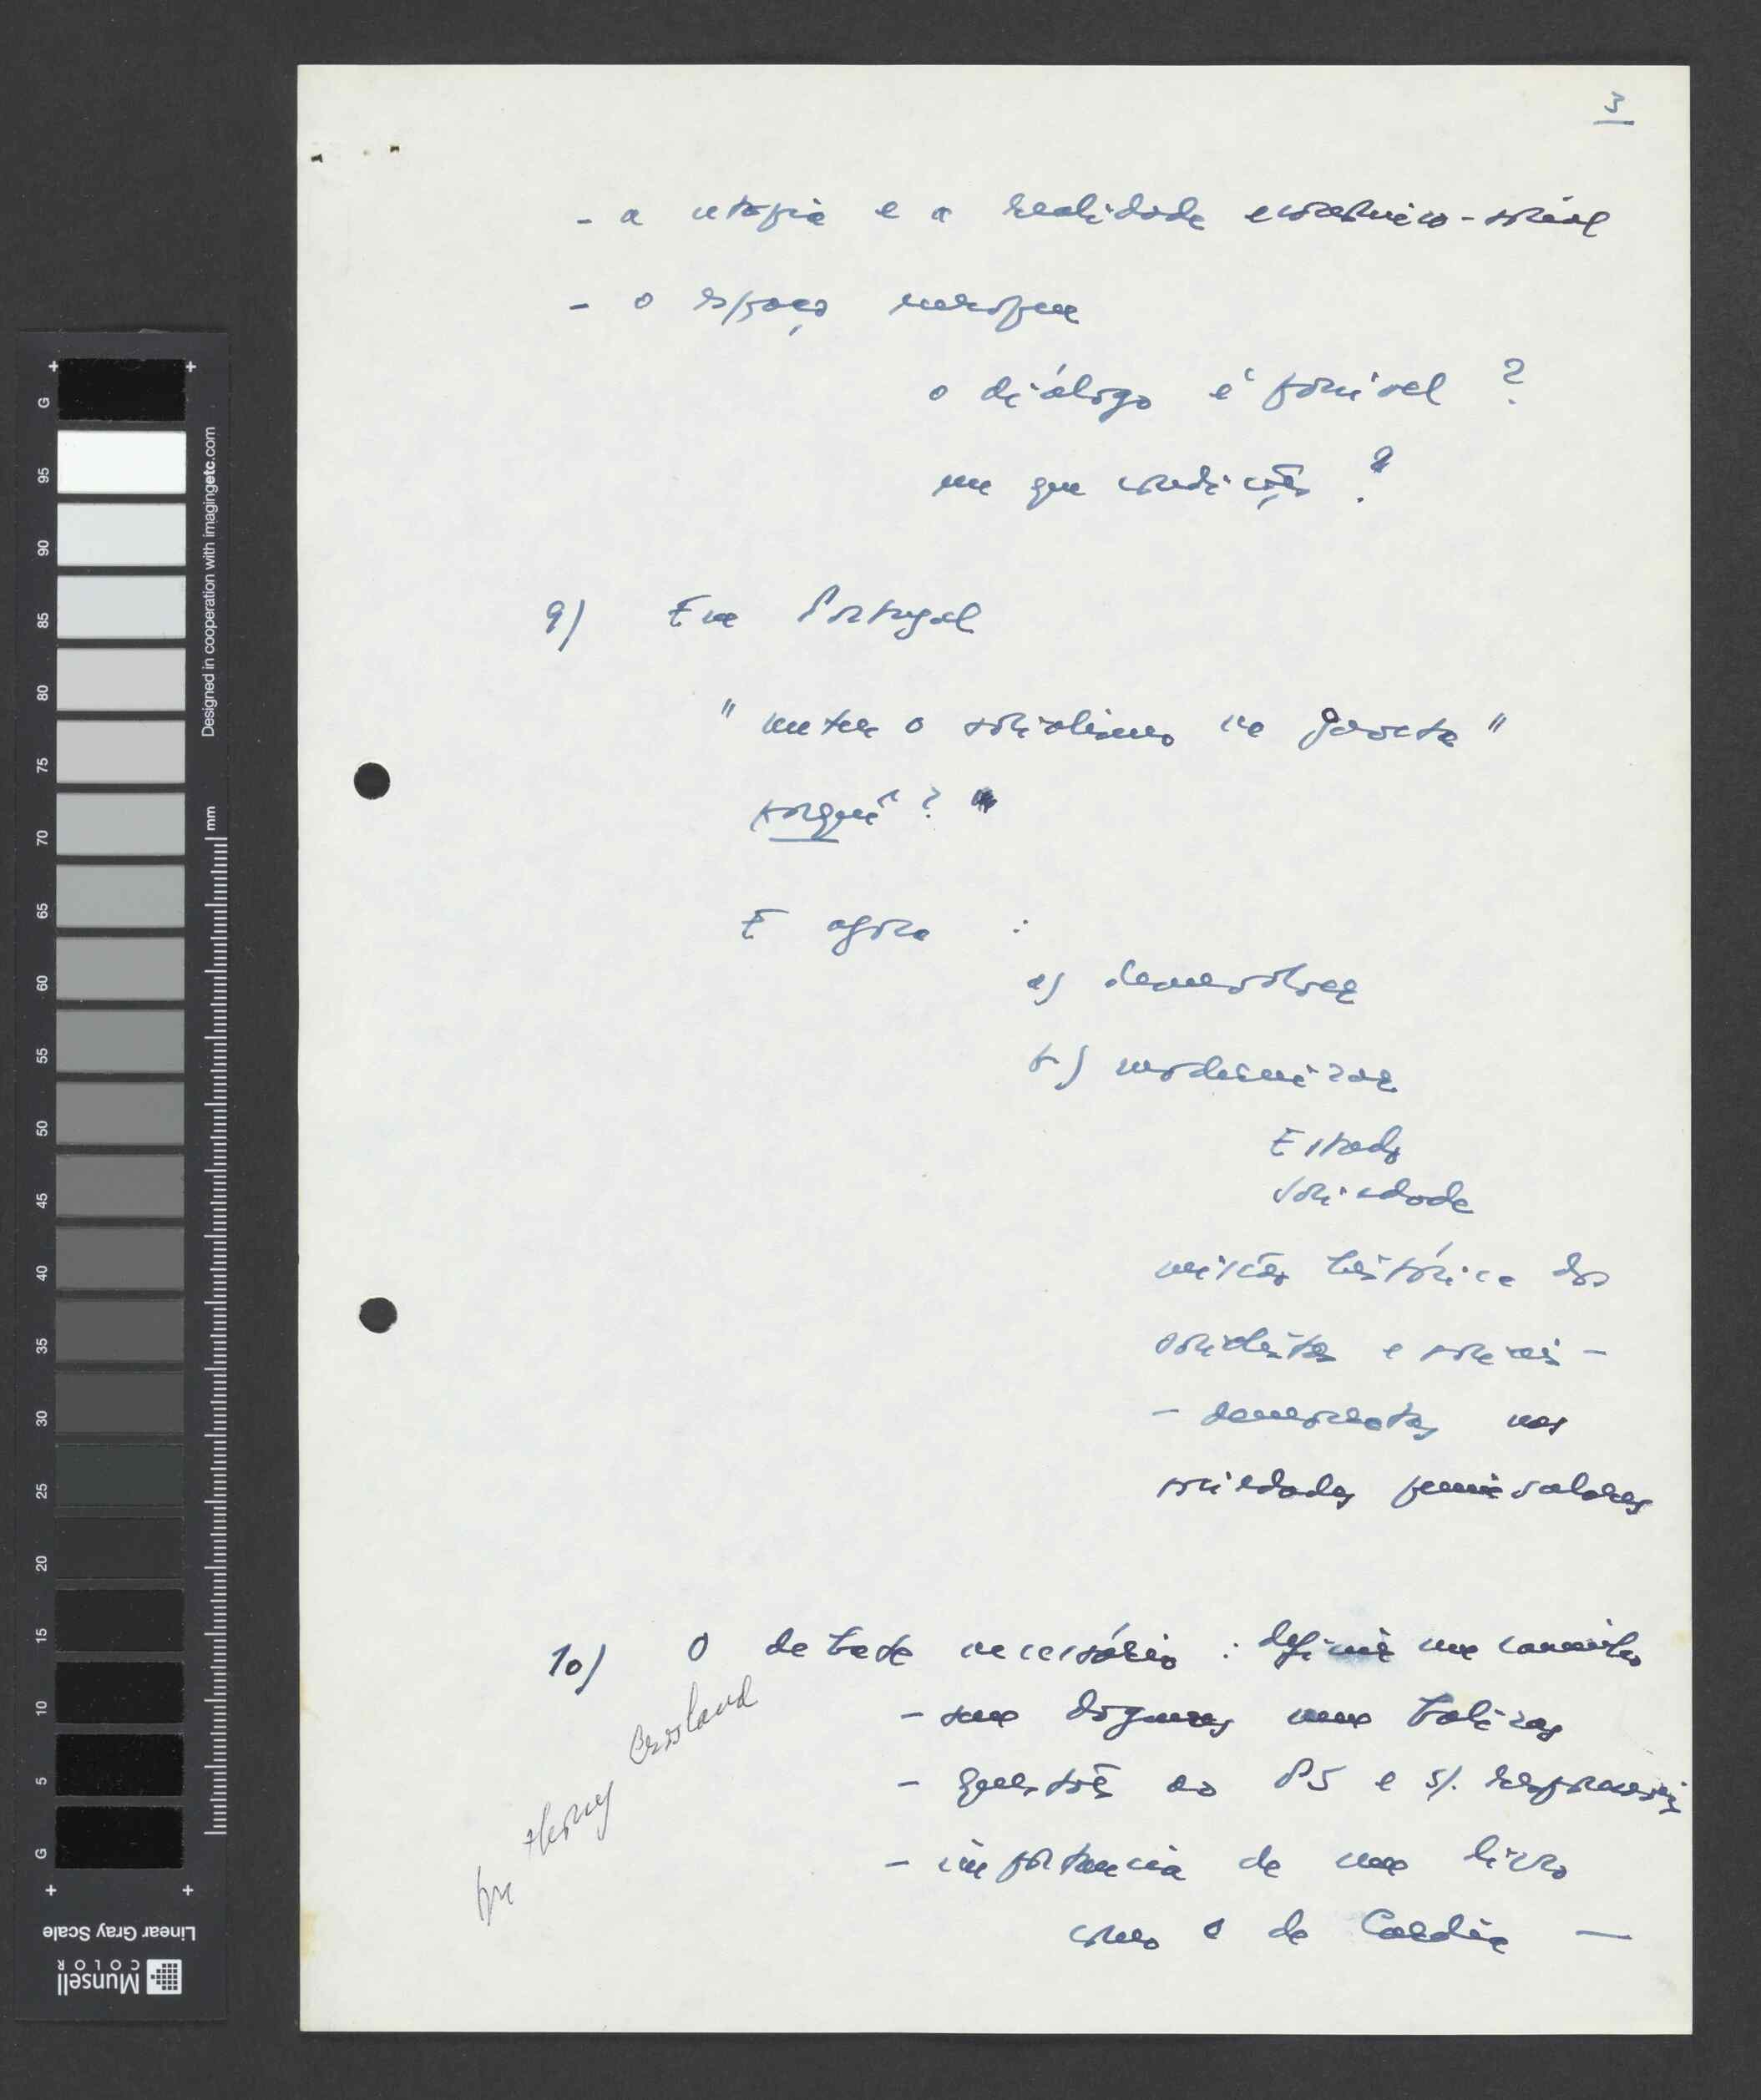 3
- a utopia e a realidade económico-social
- o espaço europeu
o diálogo é possível ?
em que condições ?
9) Em Portugal
" meter o socialismo na gaveta "
porquê ?
E agora :
a) desenvolver
b) modernizar
Estado
Sociedade
missão histórica dos
socialistas e sociais -
- democratas nas
sociedades peninsulares
10) O debate necessário : definir um caminho
- sem dogmas nem balizas
- questões ao PS e s/. responsáveis
- importancia de um livro
como o de Cardia —
Crosland
G 95 90 85 80 75 70 65 60 55 50 45 40 35 30 25 20 15 10 5 G
Designed in cooperation with imagingetc.com
mm
Linear Gray Scale
Munsell
COLOR